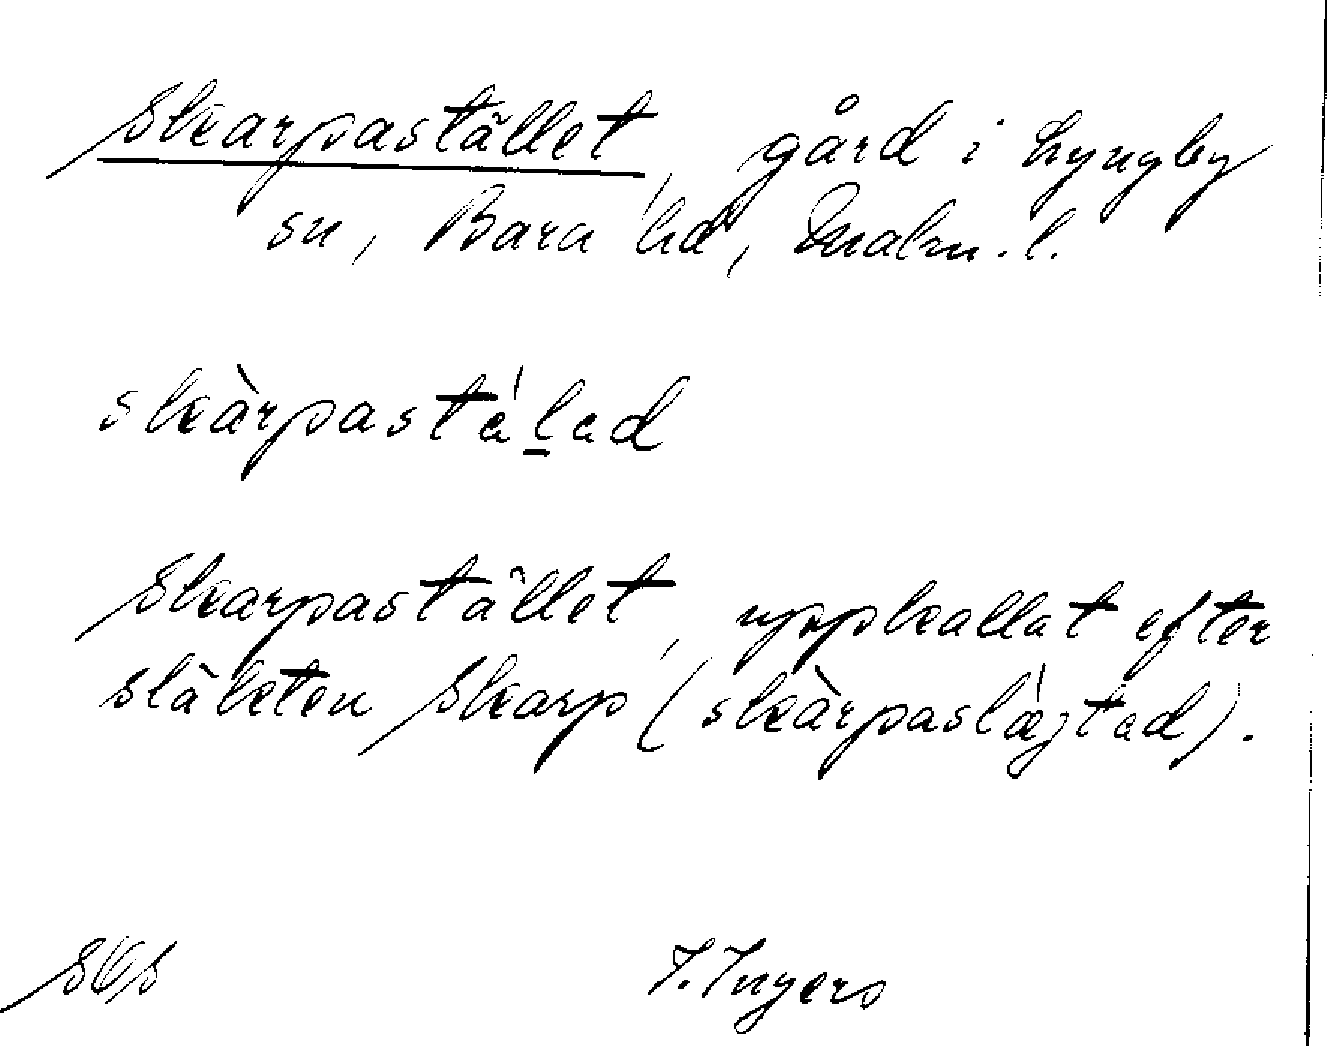 Skarpastället, gård i Lyngby
sn, Bara hd, Malm. l.
skàrpastálad
Skarpastället, uppkallat efter
släkten Skarp (skàrpaslæ̀jtad).
I. Ingers